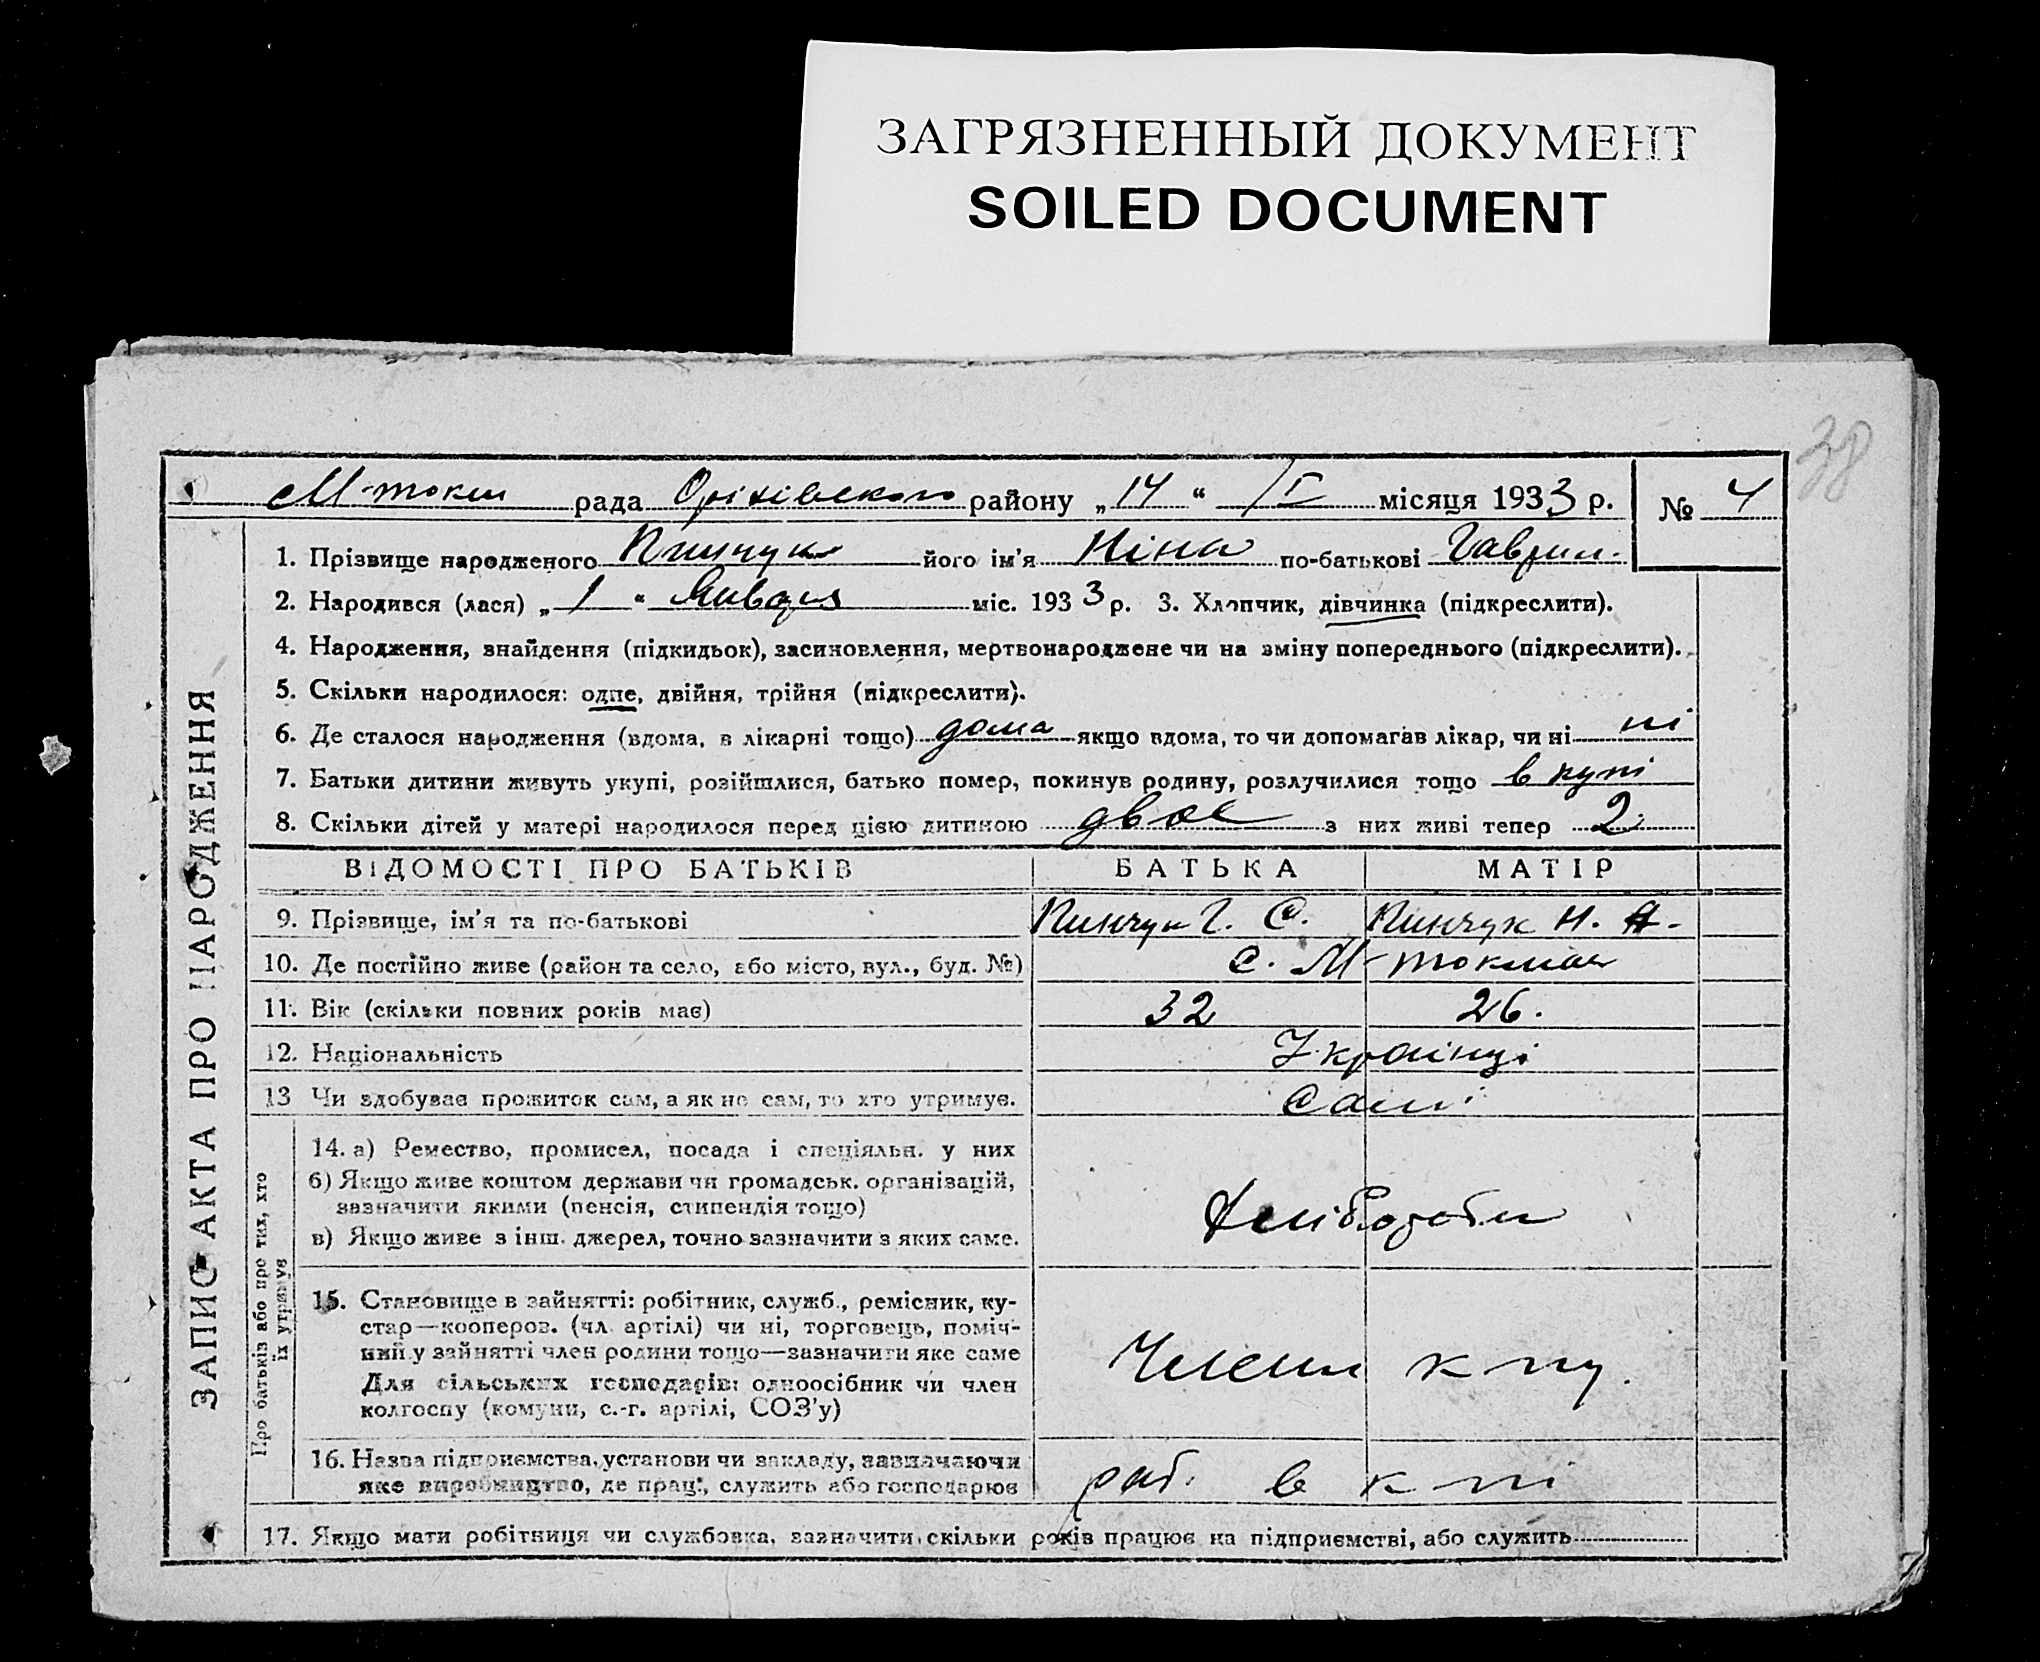 ЗАГРЯЗНЕННЫЙ ДОКУМЕНТ
SOILED DOCUMENT
38
М-токм рада Оріхівського району „14“ /I місяця 1933 р. № 4
ЗАПИС АКТА ПРО НАРОДЖЕННЯ
1. Прізвище народженого Пинчук його ім'я Ніна по-батькові Гаврил.
2. Народився (лася) „1“ Января міс. 1933 р. 3. Хлопчик, дівчинка (підкреслити).
4. Народження, знайдення (підкидьок), засиновлення, мертвонароджене чи на зміну попереднього (підкреслити).
5. Скільки народилося: одне, двійня, трійня (підкреслити).
6. Де сталося народження (вдома, в лікарні тощо) дома якщо вдома, то чи допомагав лікар, чи ні ні
7. Батьки дитини живуть укупі, розійшлися, батько помер, покинув родину, розлучилися тощо в купі
8. Скільки дітей у матері народилося перед цією дитиною двое з них живі тепер 2.
ВІДОМОСТІ ПРО БАТЬКІВ БАТЬКА МАТІР
9. Прізвище, ім'я та по-батькові Пинчук Г. С. Пинчук Н.
10. Де постійно живе (район та село, або місто, вул., буд. №) с. М-токмач
11. Вік (скільки повних років має) 32 26.
12. Національність Українці
13 Чи здобуває прожиток сам, а як не сам, то хто утримує. Сами
Про батьків або про тих, хто їх утримує
14. а) Ремество, промисел, посада і спеціяльн. у них
б) Якщо живе коштом держави чи громадськ. організацій,
зазначити якими (пенсія, стипендія тощо)
в) Якщо живе з інш. джерел, точно зазначити з яких саме.
Хліборобы
15. Становище в зайнятті: робітник, служб., ремісник, ку-
стар—коопероз. (чл. артілі) чи ні, торговець, поміч-
ний у зайнятті член родини тощо—зазначити яке саме
Для сільських господарів: одноосібник чи член
колгоспу (комуни, с.-г. артілі, СОЗ'у)
Члены к пу.
16. Назва підприємства, установи чи закладу, зазначаючи
яке виробництво, де прац., служить або господарює
раб. в к пі
17. Якщо мати робітниця чи службовка, зазначити, скільки років працює на підприємстві, або служить